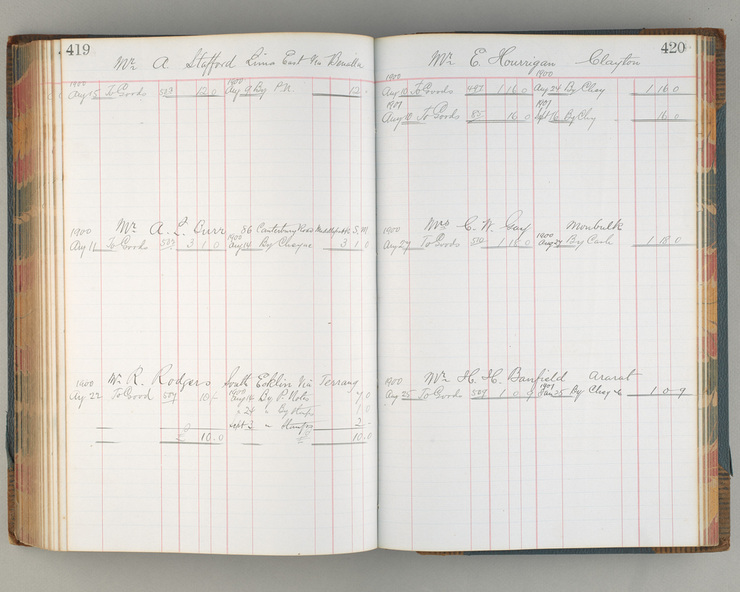 419
Mr A Stafford Lima East Via Benalla
1900 1900
Aug 15 To Goods 529 12 0 Aug 9 By P.N. 12
Mr A. L. Burr 86 Canterbury Road Middle Park S. M
1900 1900
Aug 11 To Goods 3 1 0 Aug 14 By Cheque 3 1 0
Mr R. Rodgers South Ecklin Via Terrang
1900 1900
Aug 22 To Good 10 Aug 16 By P Notes 7 0
" 24 " By Stamps 1 0
Sept 3 " Stamps 2
£ 10.0 10.0
420
Mr E. Hourrigan Clayton
1900 1900
Aug 18 To Goods 1 16 0 Aug 24 By Chq 1 16 0
1901 1901
Aug 10 To Goods 16 0 Sept 16 By Chq 16 0
Mrs C. W. Gay Monbulk
1900 1900
Aug 27 To Goods 1 10 0 Aug 24 By Cash 1 10 0
Mr H. H. Banfield Ararat
1900 1901
Aug 25 To Goods 507 1 0 9 Jan 25 By Chq 1 0 9